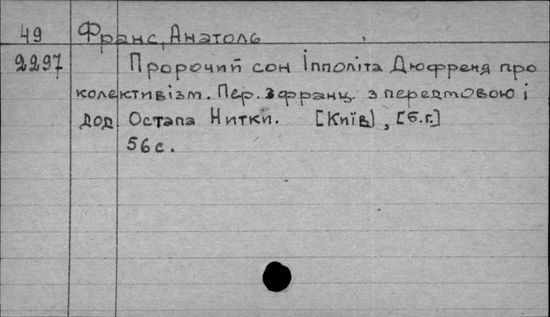 49 Франс, Анатоль
2297 Пророчий сон Іпполіта Дюфрена про
колективізм. Пер. з франц. з передмовою і
дод Остапа Нитки. [Київ], [б.г.]
56 с.